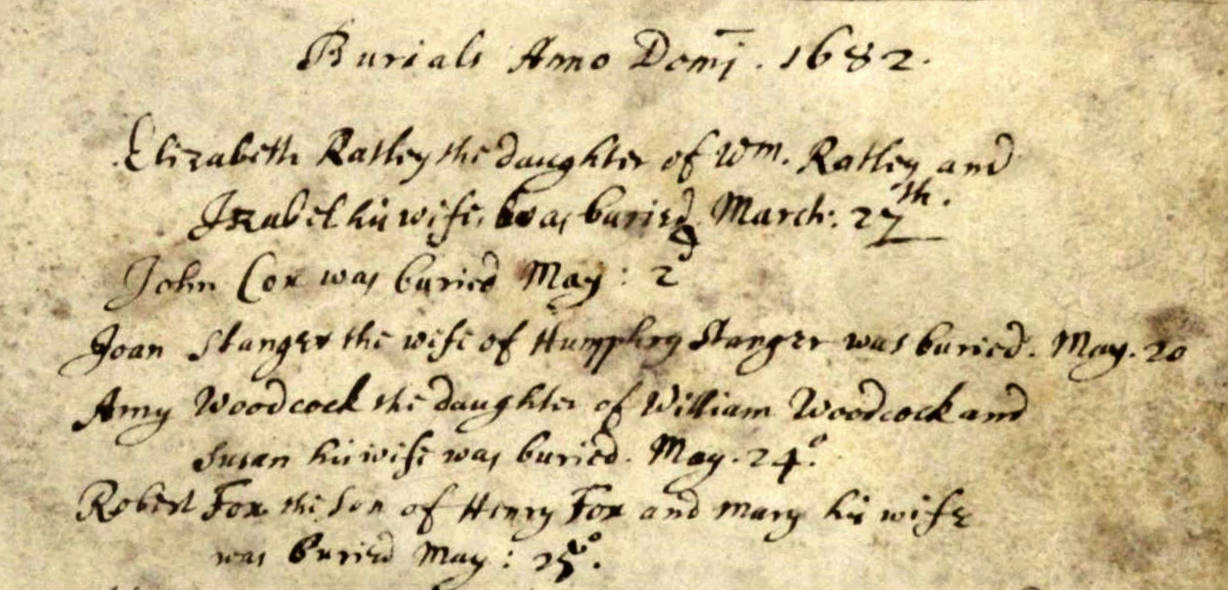 Burials Anno Domj. 1682.
Elizabeth Ratley the daughter of Wm. Ratley and
Izabel his wife was buried March: 27th.
John Cox was buried May: 2d
Joan Stanger the wife of Humphry Stanger was buried. May. 20
Amy Woodcock the daughter of William Woodcock and
Susan his wife was buried. May. 24o.
Robert Fox the Son of Henry Fox and Mary his wife
was Buried May: 25o.